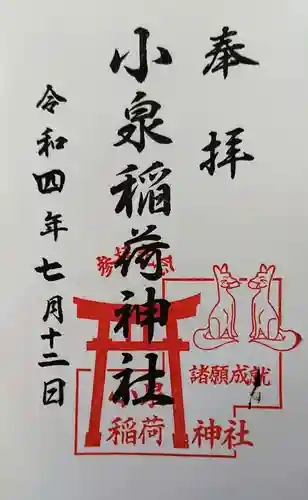 奉拝
小泉稲荷神社
令和四年七月十二日
諸願成就
小泉
稲荷神社